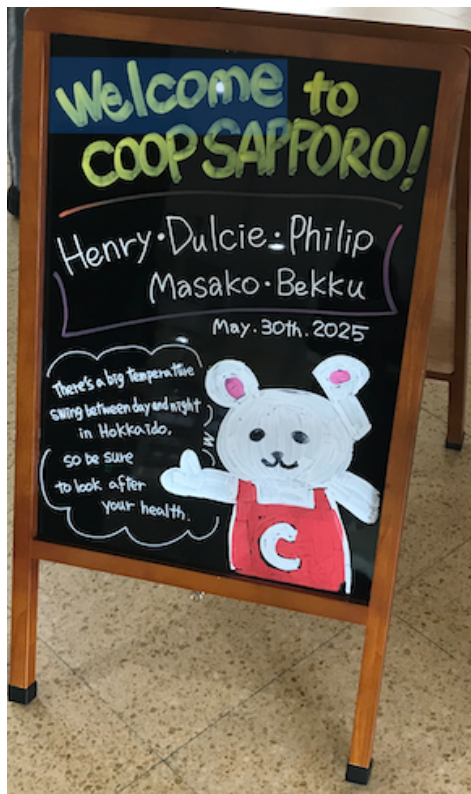 Welcome to
COOP SAPPORO!
Henry・Dulcie・Philip
Masako・Bekku
May.30th.2025
There's a big temperature
swing between day and night
in Hokkaido,
so be sure
to look after
your health.
C